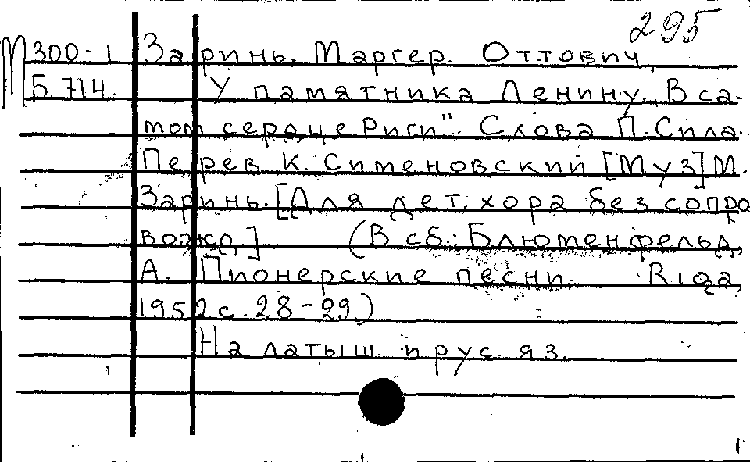 295
М 300-1 Заринь, Маргер. Оттович,
Б 714. У памятника Ленину. В са-
мом сердце Риги". Слова П. Сила.
Перев. К. Сименовский [Муз] М.
Заринь. [Для дет. хора без сопро
вожд.] (В сб.: Блюменфельд,
А. Пионерские песни. Riga,
1952 с. 28-29.)
На латыш. и рус. яз.